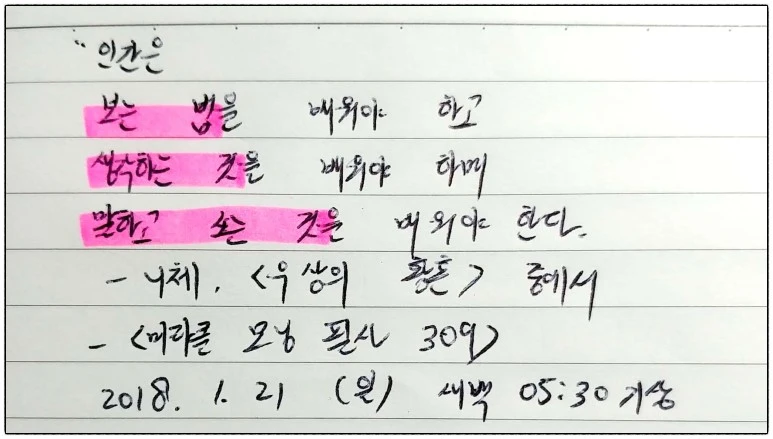 "인간은
보는 법을 배워야 하고
생각하는 것을 배워야 하며
말하고 쓰는 것을 배워야 한다.
- 니체, <우상의 황혼> 중에서
- <미라클 모닝 필사 309>
2018. 1. 21 (일) 새벽 05:30 기상